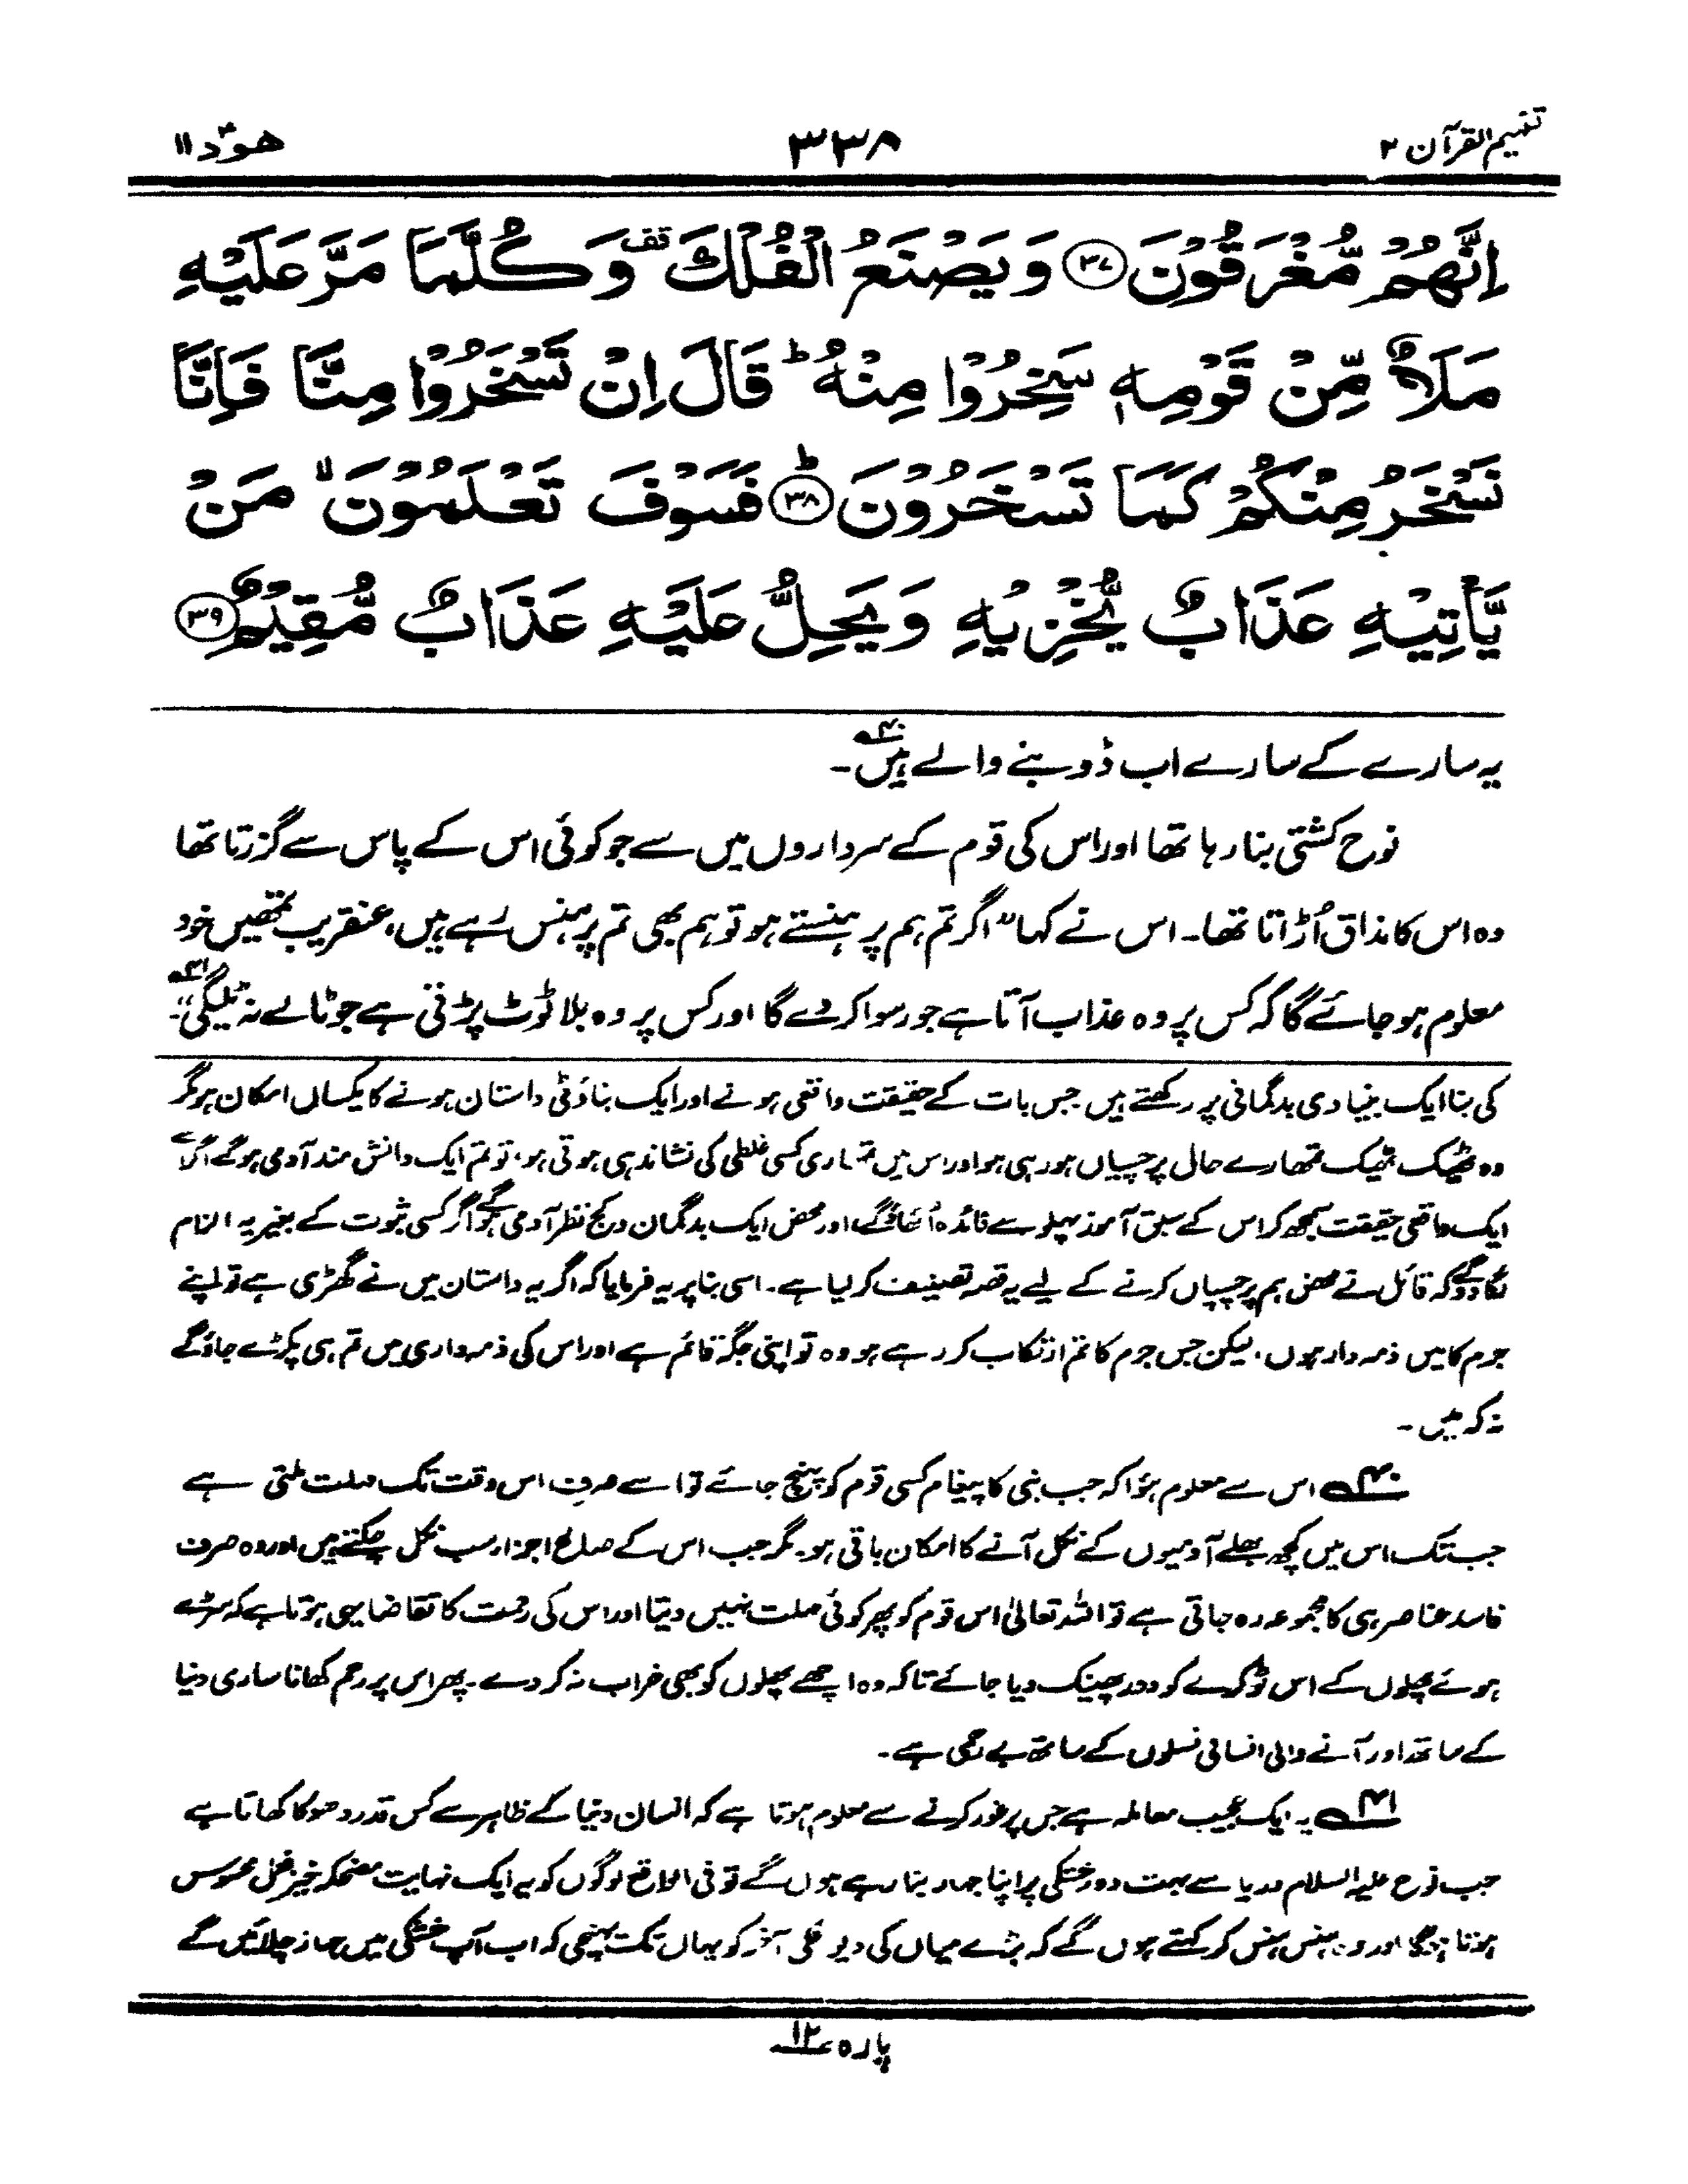 تفہیم القرآن ۲
۳۳۸
ھود ۱۱
اِنَّهُمْ مُّغْرَقُوْنَ ﴿۳۷﴾ وَ يَصْنَعُ الْفُلْكَ ۫ وَ كُلَّمَا مَرَّ عَلَيْهِ
مَلَاٌ مِّنْ قَوْمِهٖ سَخِرُوْا مِنْهُ ؕ قَالَ اِنْ تَسْخَرُوْا مِنَّا فَاِنَّا
نَسْخَرُ مِنْكُمْ كَمَا تَسْخَرُوْنَ ﴿۳۸﴾ؕ فَسَوْفَ تَعْلَمُوْنَ ۙ مَنْ
يَّاْتِيْهِ عَذَابٌ يُّخْزِيْهِ وَ يَحِلُّ عَلَيْهِ عَذَابٌ مُّقِيْمٌ ﴿۳۹﴾
یہ سارے کے سارے اب ڈوبنے والے ہیں۴۰۔
نوح کشتی بنا رہا تھا اور اس کی قوم کے سرداروں میں سے جو کوئی اس کے پاس سے گزرتا تھا
وہ اس کا مذاق اُڑاتا تھا۔ اس نے کہا "اگر تم ہم پر ہنستے ہو تو ہم بھی تم پر ہنس رہے ہیں، عنقریب تمھیں خود
معلوم ہو جائے گا کہ کس پر وہ عذاب آتا ہے جو رسوا کر دے گا اور کس پر وہ بلا ٹوٹ پڑتی ہے جو ٹالے نہ ٹلیگی۴۱"۔
کی بنا ایک بنیادی بدگمانی پر رکھتے ہیں جس بات کے حقیقت واقعی ہونے اور ایک بناؤٹی داستان ہونے کا یکساں امکان ہو مگر
وہ ٹھیک ٹھیک تمھارے حال پر چسپاں ہو رہی ہو اور اس میں تمہاری کسی غلطی کی نشاندہی ہوتی ہو، تو تم ایک دانش مند آدمی ہو گے اگر اسے
ایک واقعی حقیقت سمجھ کر اس کے سبق آموز پہلو سے فائدہ اُٹھاؤ گے اور محض ایک بدگمان و کج نظر آدمی ہو گے اگر کسی ثبوت کے بغیر یہ الزام
لگا دو گے کہ قائل نے محض ہم پر چسپاں کرنے کے لیے یہ قصہ تصنیف کر لیا ہے۔ اسی بنا پر یہ فرمایا کہ اگر یہ داستان میں نے گھڑی ہے تو اپنے
جرم کا میں ذمہ دار ہوں، لیکن جس جرم کا تم ارتکاب کر رہے ہو وہ تو اپنی جگہ قائم ہے اور اس کی ذمہ داری میں تم ہی پکڑے جاؤ گے
نہ کہ میں۔
۴۰ اس سے معلوم ہؤا کہ جب نبی کا پیغام کسی قوم کو پہنچ جائے تو اسے صرف اس وقت تک مہلت ملتی ہے
جب تک اس میں کچھ بھلے آدمیوں کے نکل آنے کا امکان باقی ہو۔ مگر جب اس کے صالح اجزاء سب نکل چکتے ہیں اور وہ صرف
فاسد عناصر ہی کا مجموعہ رہ جاتی ہے تو اللہ تعالیٰ اس قوم کو پھر کوئی مہلت نہیں دیتا اور اس کی رحمت کا تقاضا یہی ہوتا ہے کہ سڑے
ہوئے پھلوں کے اس ٹوکرے کو دور پھینک دیا جائے تاکہ وہ اچھے پھلوں کو بھی خراب نہ کر دے۔ پھر اس پر رحم کھانا ساری دنیا
کے ساتھ اور آنے والی انسانی نسلوں کے ساتھ بے رحمی ہے۔
۴۱ یہ ایک عجیب معاملہ ہے جس پر غور کرنے سے معلوم ہوتا ہے کہ انسان دنیا کے ظاہر سے کس قدر دھوکا کھاتا ہے
جب نوح علیہ السلام دریا سے بہت دور خشکی پر اپنا جہاز بنا رہے ہوں گے تو فی الواقع لوگوں کو یہ ایک نہایت مضحکہ خیز فعل محسوس
ہوتا ہوگا اور وہ ہنس ہنس کر کہتے ہوں گے کہ بڑے میاں کی دیوانگی آخر کو یہاں تک پہنچی کہ اب آپ خشکی میں جہاز چلائیں گے
پارہ ۱۲